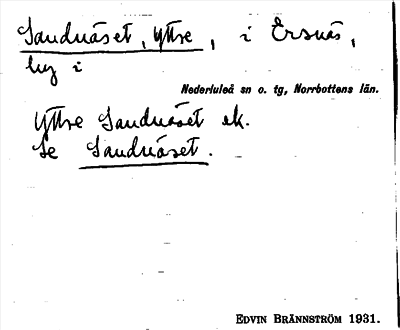 Sandnäset, Yttre, i Ersnäs,
by i
Nederluleå sn o. tg, Norrbottens län.
Yttre Sandnäset ek.
Se Sandnäset.
EDVIN BRÄNNSTRÖM 1931.